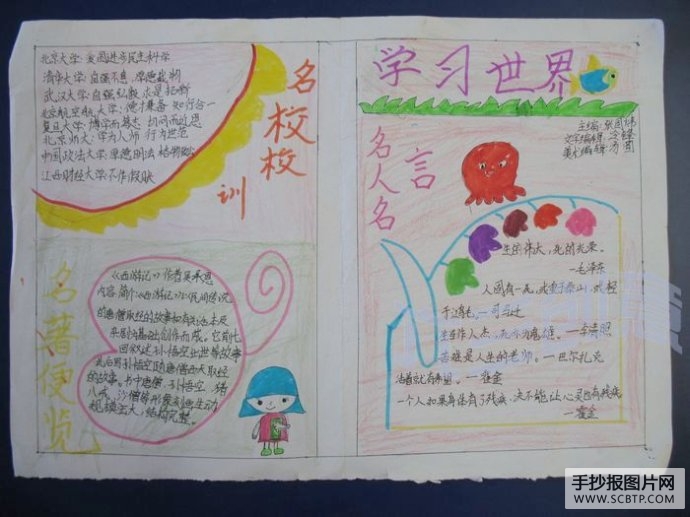 北京大学:爱国进步民主科学
清华大学:自强不息 厚德载物
武汉大学:自强弘毅 求是拓新
北京航空航天大学:德才兼备 知行合一
复旦大学:博学而笃志 切问而近思
北京师大:学为人师 行为世范
中国政法大学:厚德明法 格物致公
江西财经大学不作假账
名校校训
《西游记》作者吴承恩
内容简介:《西游记》以民间传说
的唐僧取经的故事和有关话本及
杂剧为基础创作而成。它前七
回叙述孙悟空出世等故事
此后写孙悟空随唐僧西天取经
的故事。书中唐僧、孙悟空、猪
八戒、沙僧等形象刻画生动
规模宏大,结构完整。
名著便览
学习世界
主编:张国
文字编辑:
美术编辑:
名人名言
生的伟大,死的光荣。
—毛泽东
人固有一死,或重于泰山,或轻
于鸿毛。—司马迁
生当作人杰,死亦为鬼雄。—李清照
苦难是人生的老师。—巴尔扎克
活着就有希望。—霍金
一个人如果身体有了残疾,决不能让心灵也有残疾
—霍金
手抄报图片网
WWW.SCBTP.COM